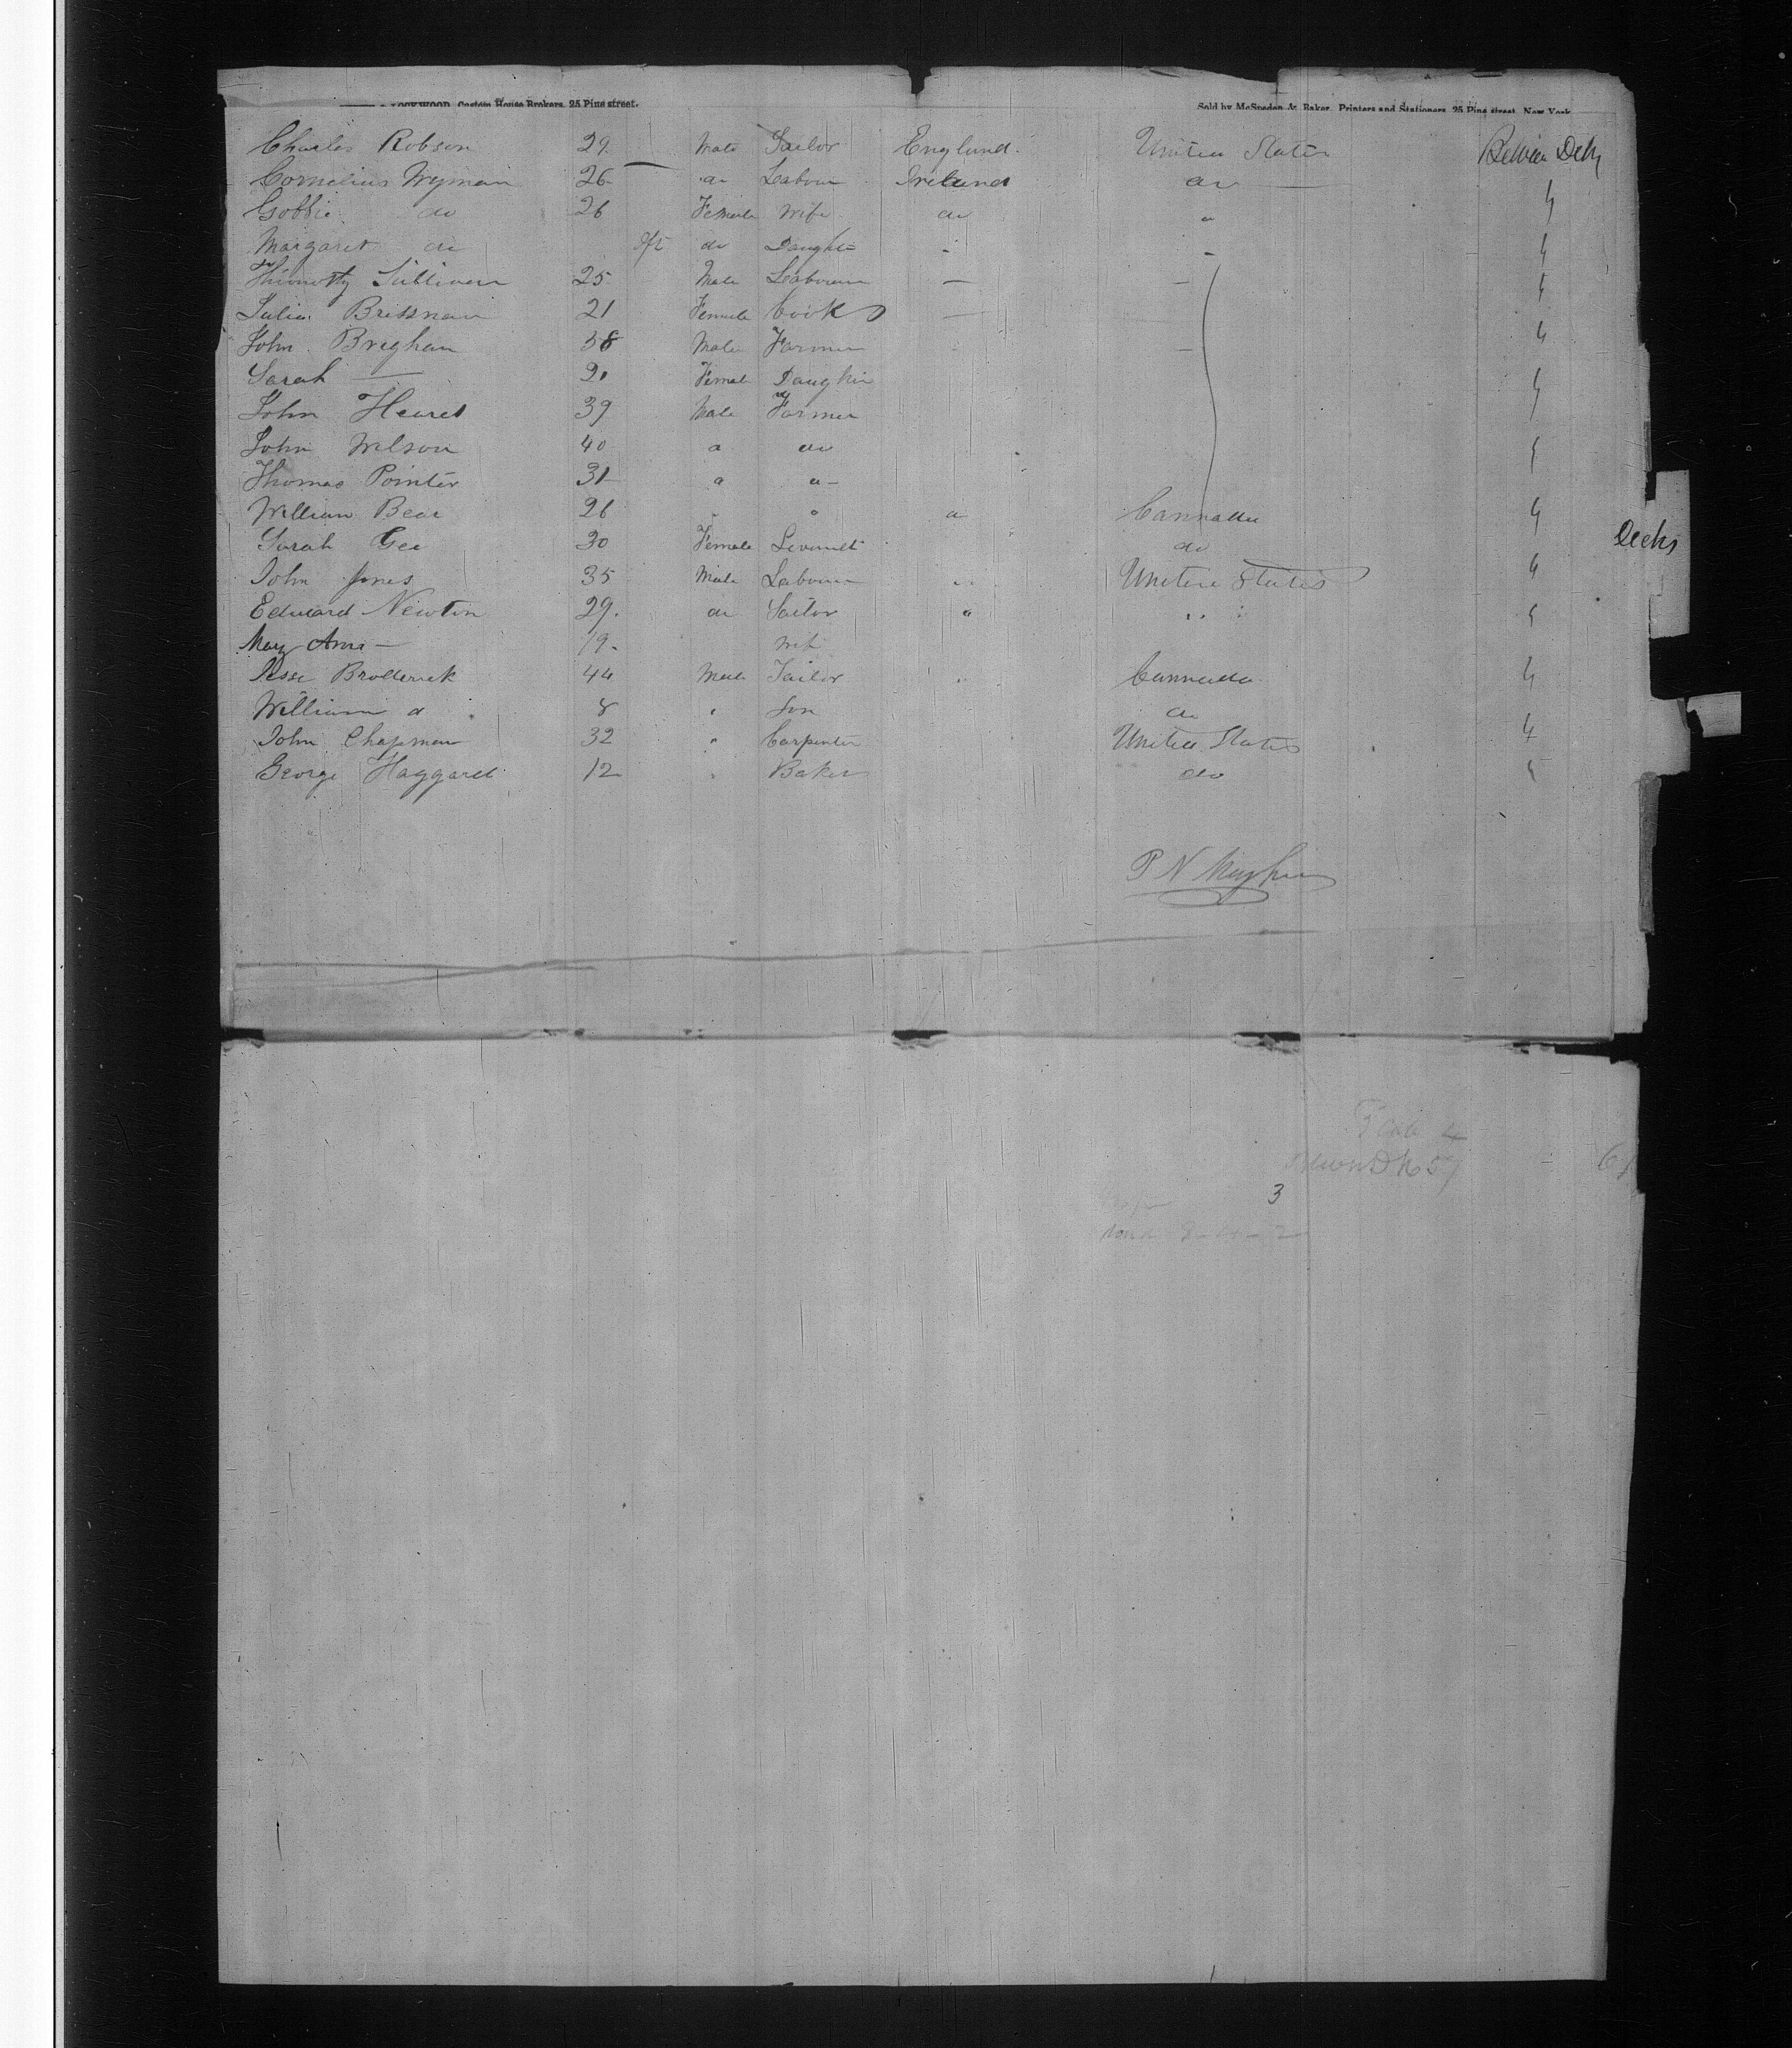 LOCKWOOD, Custom House Brokers, 25 Pine street. Sold by McSpedon & Baker, Printers and Stationers, 25 Pine street, New York
Charles Robson 29 Male Sailor England. United States Between Deck
Cornelius Wyman 26 do Labour Ireland do
do 26 Female Wife do "
Margaret do do Daught
Thimothy Sullivan 25 Male Labourer — —
Julia Brissnan 21 Female Cook —
John Breghan 38 Male Farmer —
Sarah — 21 Female Daughter
John Heard 39 Male Farmer
John Wilson 40 do
Thomas Pointer 31
William Bear 26 " " Cannada
Sarah Gee 30 Female Servant do Decks
John Jones 35 Male Labourer " United States
Edward Newton 29. do Sailor " "
Mary Ann — 19. Wife
Jesse Broderick 44 Male Tailor " Cannada
William d 8 " Son do
John Chapman 32 " Carpenter United States
George Haggard 12 " Baker do
P N
3